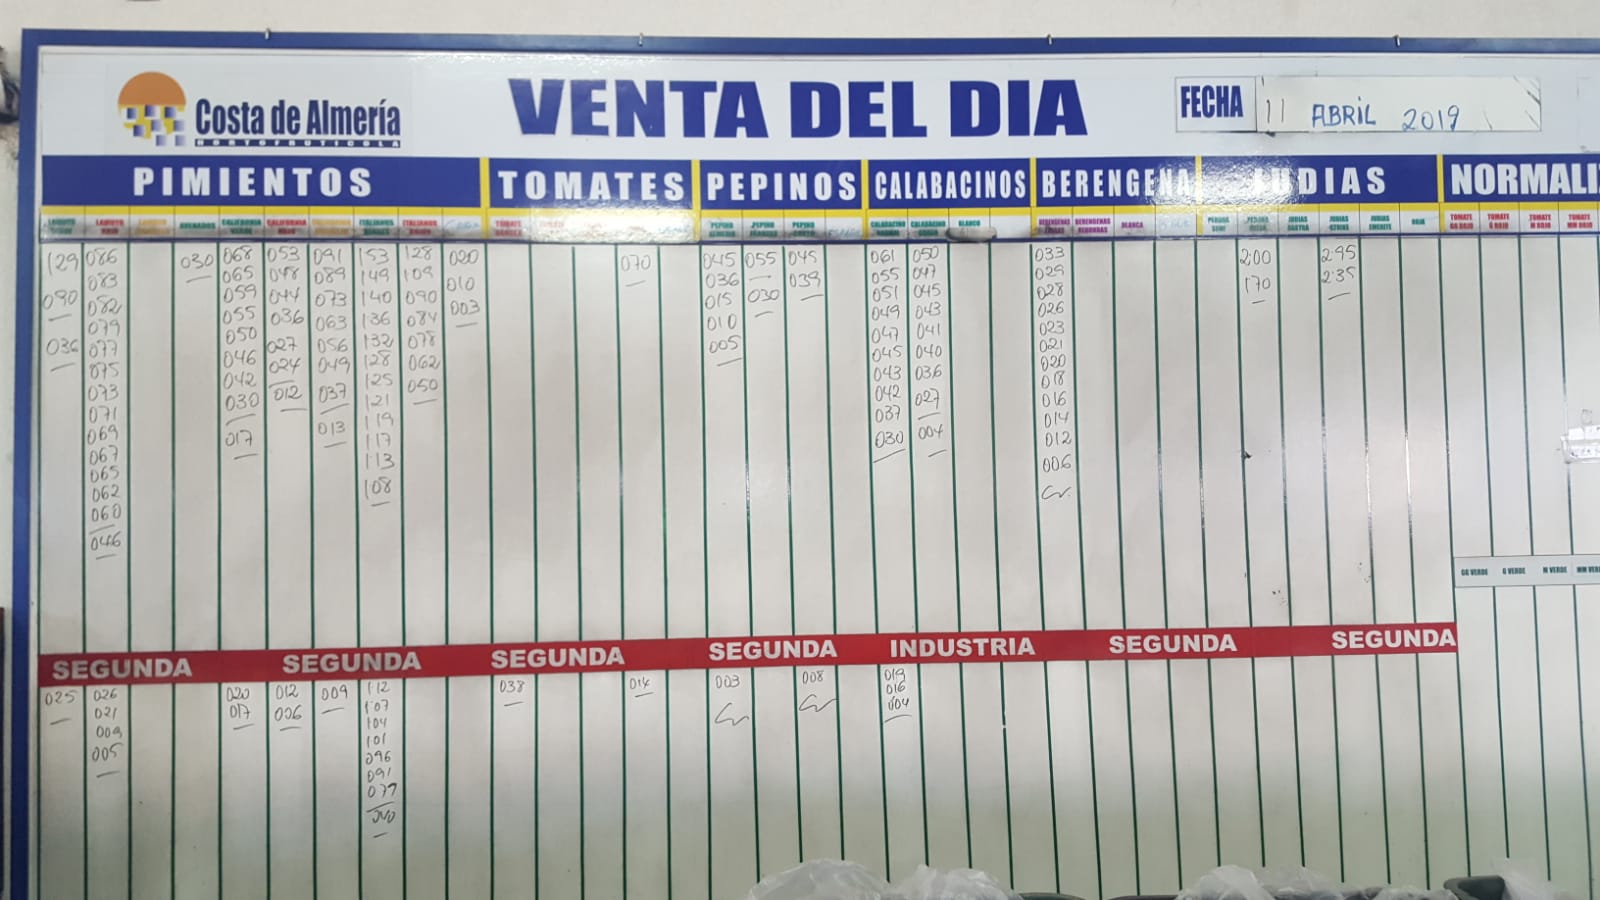 Costa de Almería
HORTOFRUTICOLA
VENTA DEL DIA
FECHA 11 ABRIL 2019
PIMIENTOS TOMATES PEPINOS CALABACINOS BERENGENA JUDIAS NORMALI
LAMUYO ROJO ASENADOS CALIFORNIA VERDE CALIFORNIA ROJO ITALIANOS VERDES ITALIANOS ROJOS PEPINO ALMERIA PEPINO FRANCES PEPINO CORTO CALABACINO CALABACINO BLANCO BERENGENAS BERENGENAS REDONDAS BLANCA PERONA JUDIAS RASTRA JUDIAS JUDIAS EMERITE ROJA TOMATE GG ROJO TOMATE G ROJO TOMATE M ROJO TOMATE MM ROJO
129 086 030 068 053 091 153 128 020 070 045 055 045 061 050 033 200 295
083 065 048 089 149 109 010 036 039 055 047 029 170 235
090 082 059 044 073 140 090 003 015 030 051 045 028
079 055 036 063 136 084 010 049 043 026
036 077 050 027 056 132 078 005 047 041 023
075 046 024 049 128 062 045 040 021
073 042 012 037 125 050 043 036 020
071 030 013 121 042 027 018
069 017 119 037 004 016
067 117 030 014
065 113 012
062 108 006
060
046
GG VERDE G VERDE M VERDE MM VER
SEGUNDA SEGUNDA SEGUNDA SEGUNDA INDUSTRIA SEGUNDA SEGUNDA
025 026 020 012 009 112 038 014 003 008 019
021 017 006 107 016
009 104 004
005 101
096
091
077